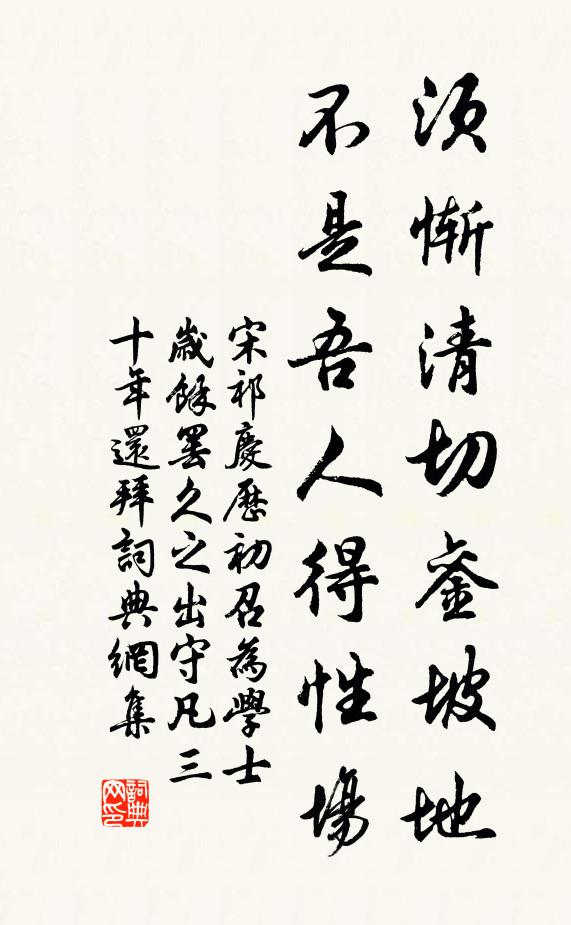 須慚清切銮坡地
不是吾人得性場
宋祁慶歷初召為學士
歲餘罢久之出守凡三
十年還拜詞典網集
詞典网印